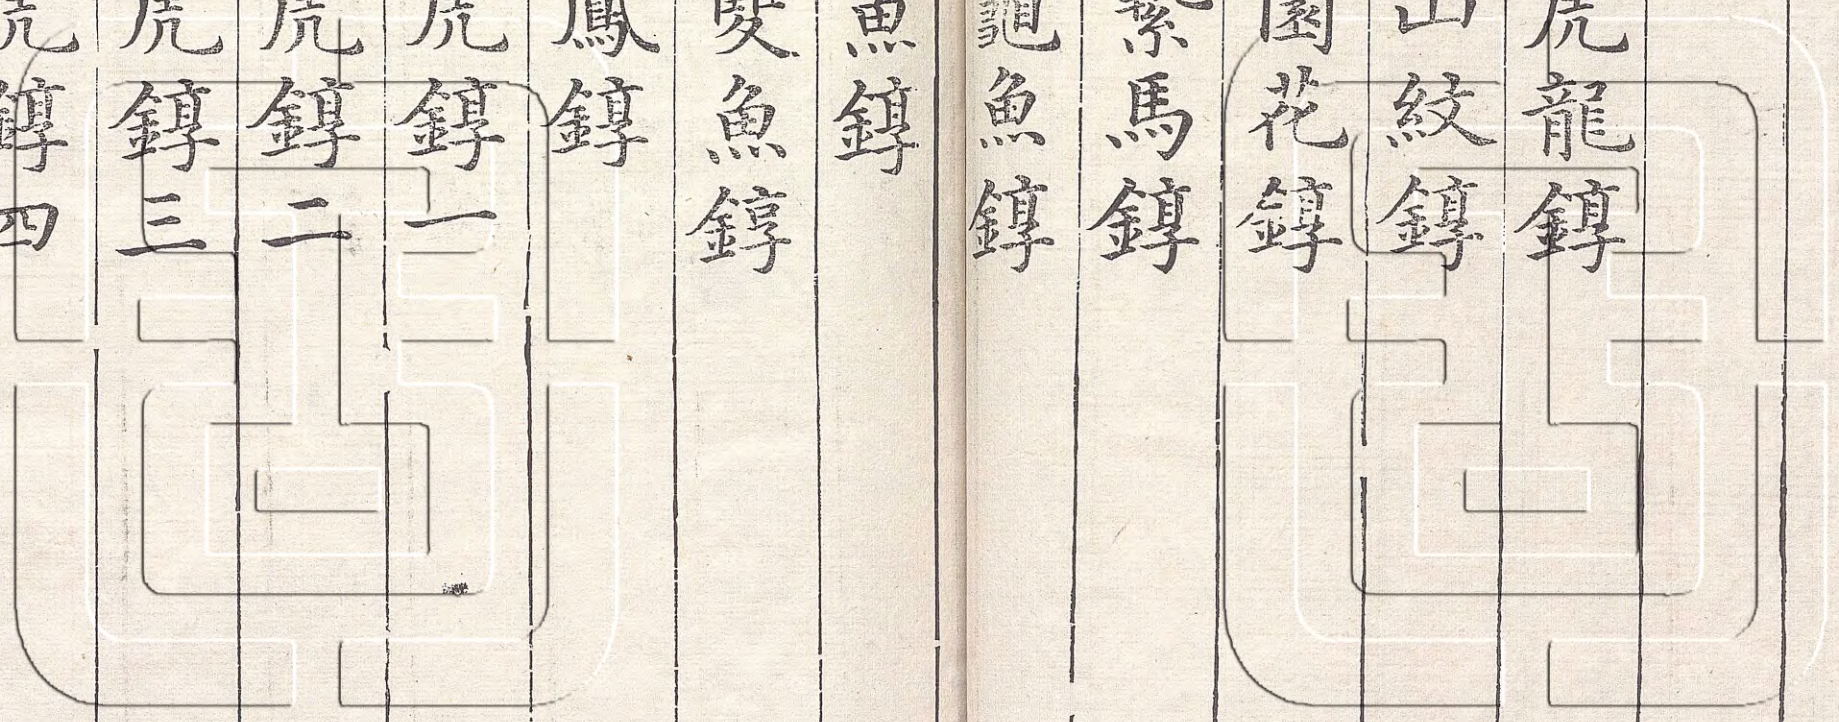 虎龍錞
山紋錞
圜花錞
縶馬錞
龜魚錞
魚錞
雙魚錞
鳳錞
虎錞一
虎錞二
虎錞三
虎錞四